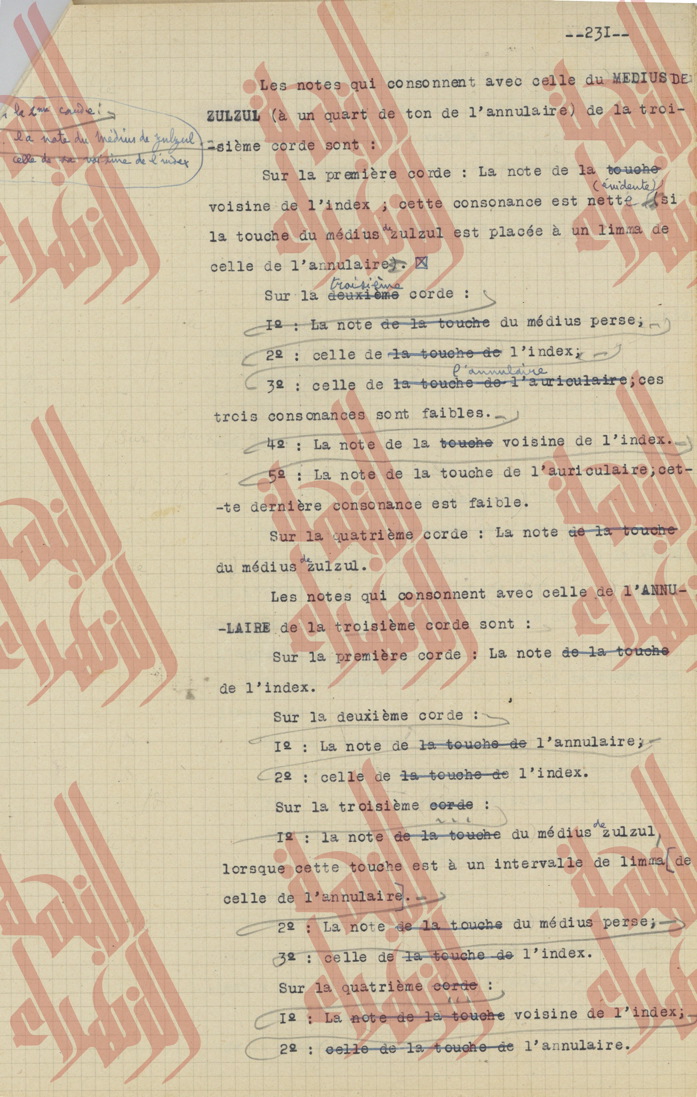 --23I--
Les notes qui consonnent avec celle du MEDIUS DE
ZULZUL (à un quart de ton de l'annulaire) de la troi-
-sième corde sont :
la note du médius de zulzul
celle de la voisine de l'index
Sur la première corde : La note de la touche
(évidente)
voisine de l'index ; cette consonance est nette (si
la touche du médius de zulzul est placée à un limma de
celle de l'annulaire).
troisième
Sur la deuxième corde :
Iº : La note de la touche du médius perse;
2º : celle de la touche de l'index;
l'annulaire
3º : celle de la touche de l'auriculaire;ces
trois consonances sont faibles.
4º : La note de la touche voisine de l'index.
5º : La note de la touche de l'auriculaire;cet-
-te dernière consonance est faible.
Sur la quatrième corde : La note de la touche
du médius de zulzul.
Les notes qui consonnent avec celle de l'ANNU-
-LAIRE de la troisième corde sont :
Sur la première corde : La note de la touche
de l'index.
Sur la deuxième corde :
Iº : La note de la touche de l'annulaire;
2º : celle de la touche de l'index.
Sur la troisième corde :
Iº : la note de la touche du médius de zulzul,
lorsque cette touche est à un intervalle de limma [de
celle de l'annulaire].
2º : La note de la touche du médius perse;
3º : celle de la touche de l'index.
Sur la quatrième corde :
Iº : La note de la touche voisine de l'index;
2º : celle de la touche de l'annulaire.